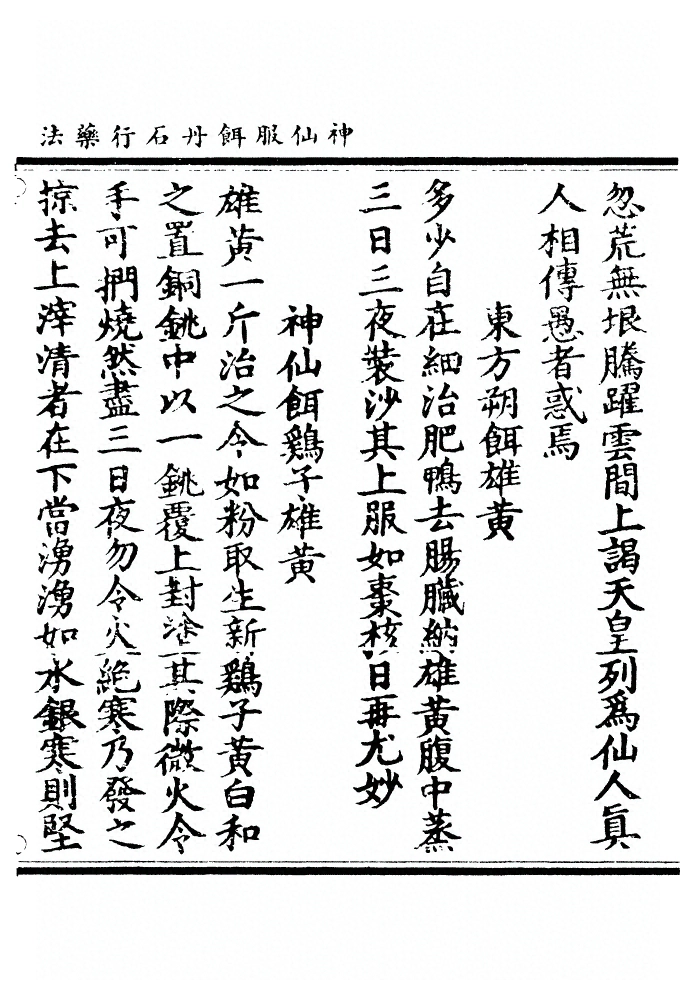 神仙服餌丹石行藥法
忽荒無垠騰躍雲間上謁天皇列爲仙人眞
人相傳愚者惑焉
東方朔餌雄黄
多少自在細治肥鴨去腸臟納雄黄腹中蒸
三日三夜裝沙其上服如棗核日再尤妙
神仙餌鷄子雄黄
雄黄一斤治之令如粉取生新鷄子黄白和
之置銅銚中以一銚覆上封塗其際微火令
手可捫燒然盡三日夜勿令火絶寒乃發之
掠去上滓清者在下當湧湧如水銀寒則堅